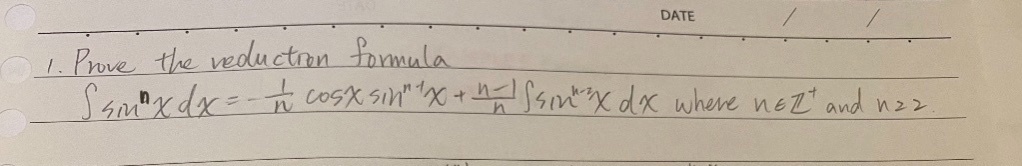 DATE / /
1. Prove the reduction formula
∫sinⁿx dx = -1/n cosx sinⁿ⁻¹x + n-1/n ∫sinⁿ⁻²x dx where n∈ℤ⁺ and n≥2.